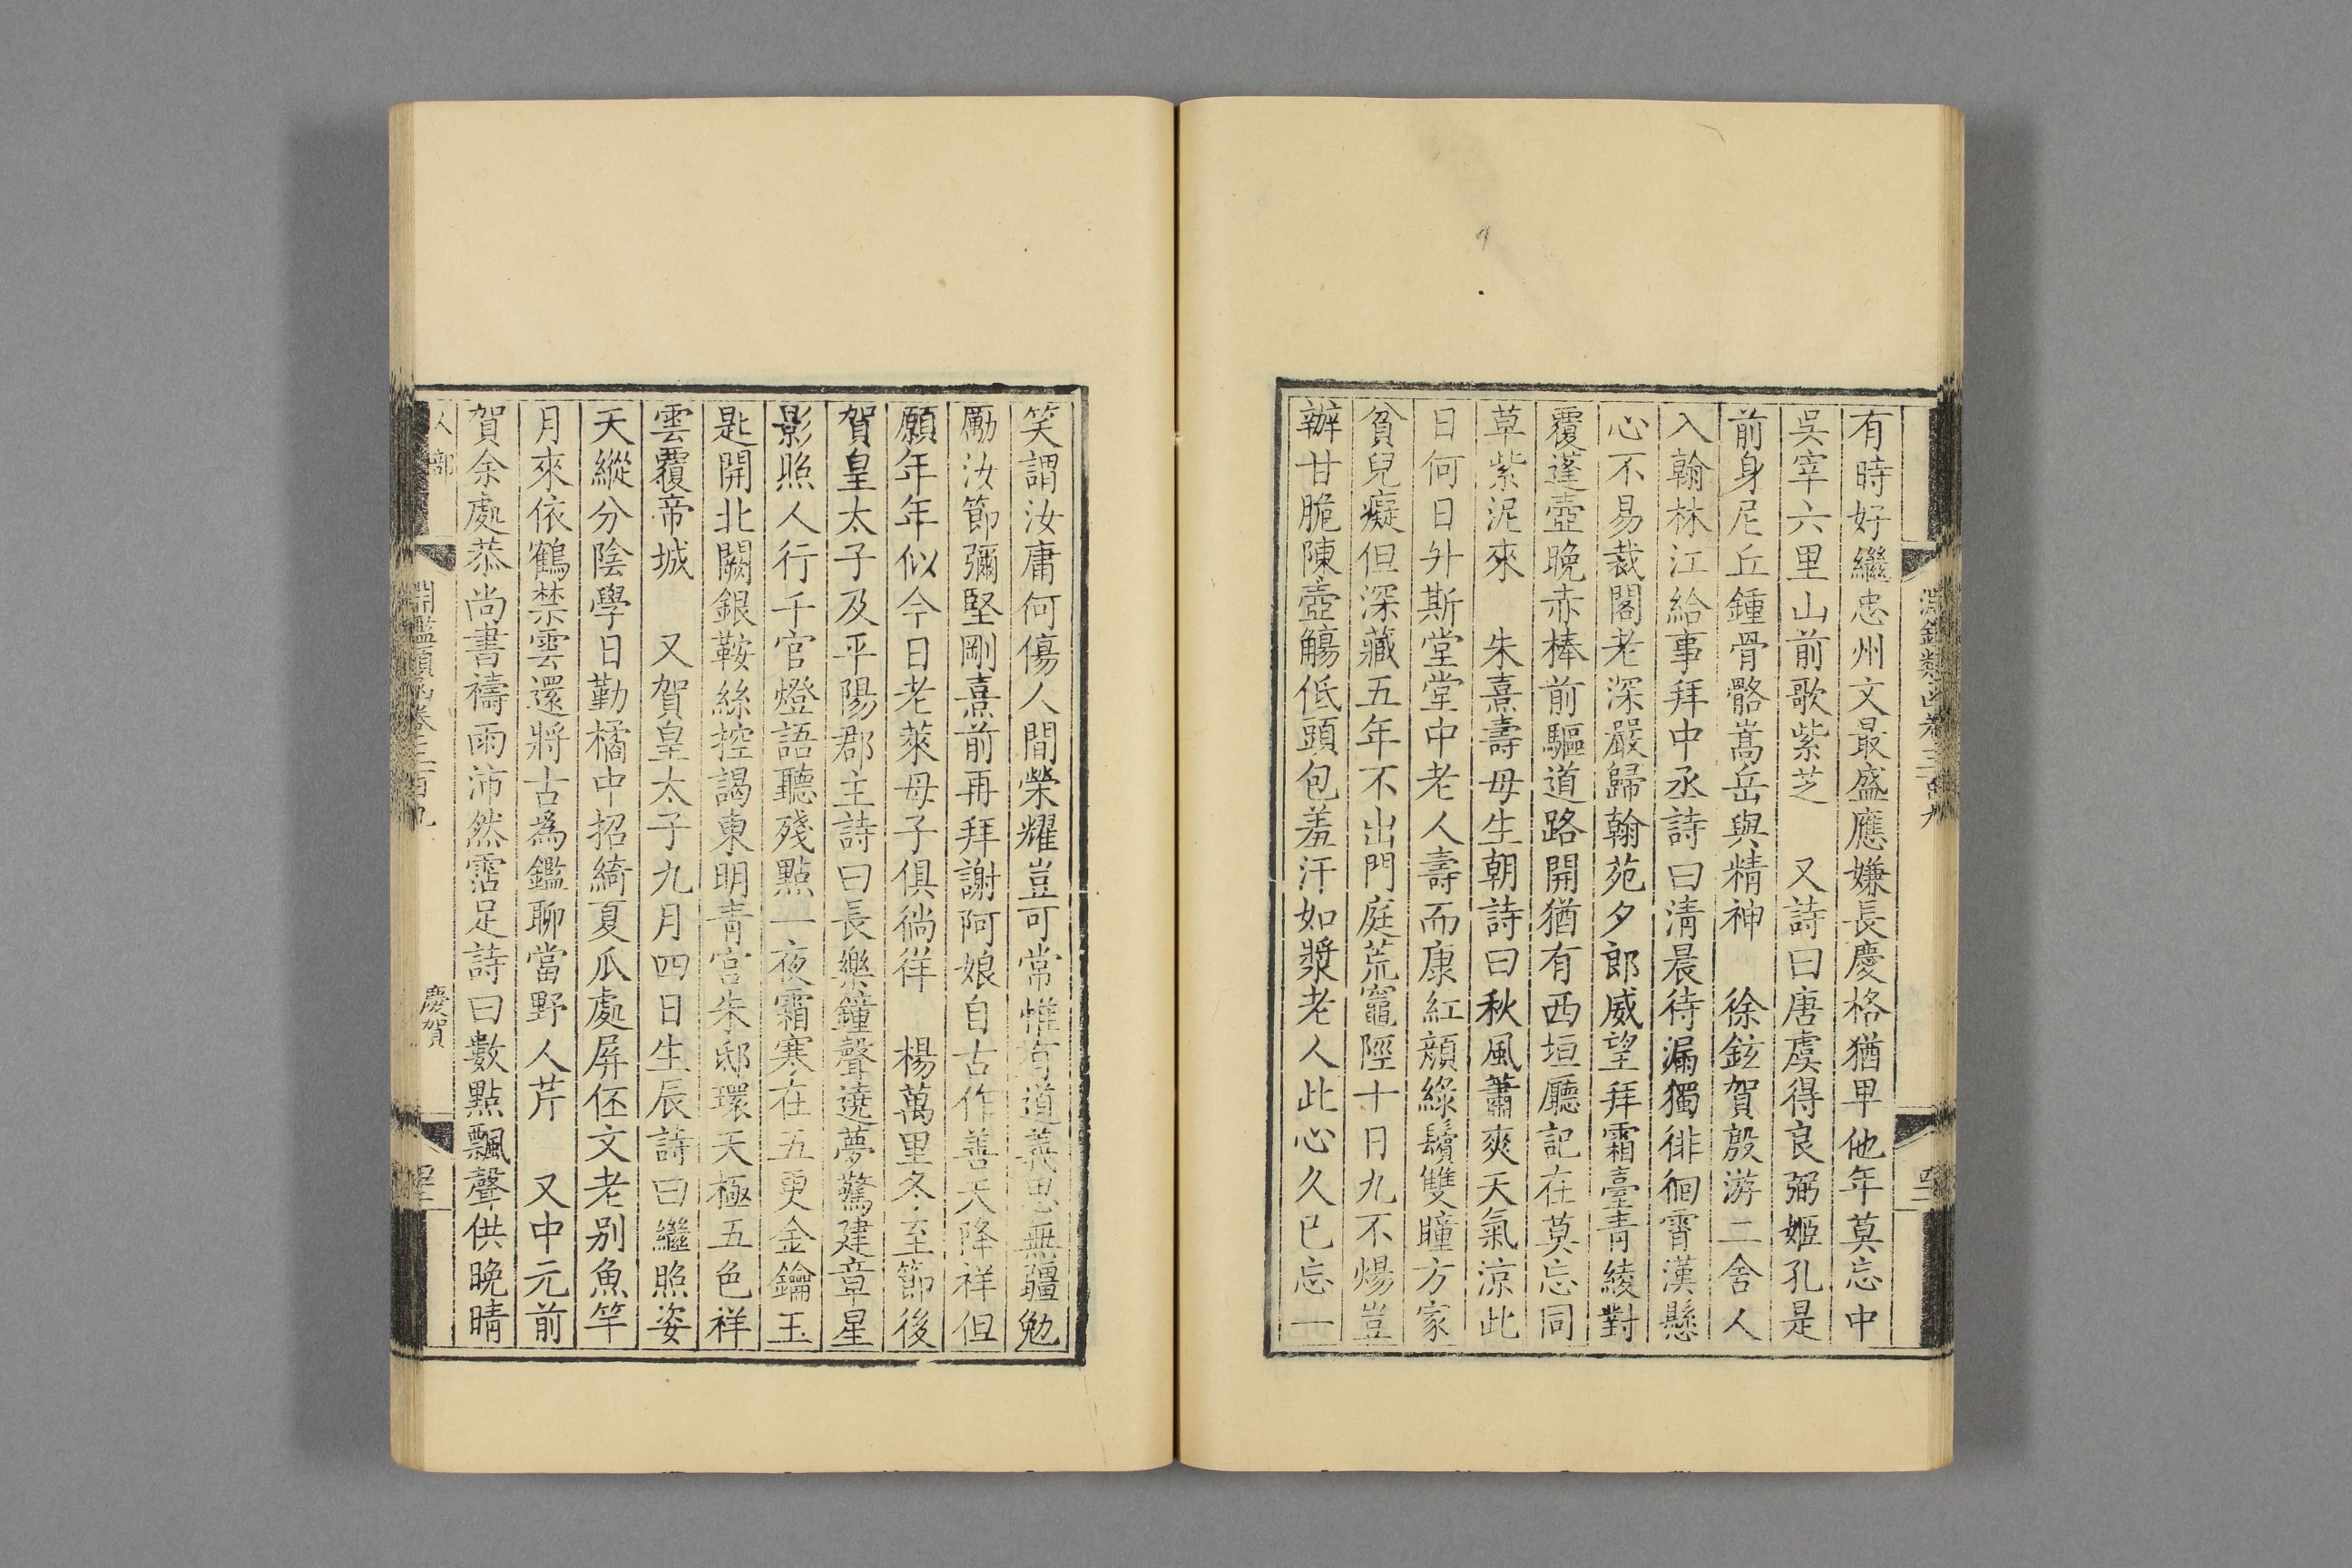 有時好繼忠州文最盛應嫌長慶格猶𤰞他年莫忘中
吳宰六里山前歌紫芝　又詩曰唐虞得良弼姬孔是
前身尼丘鍾骨骼嵩岳與精神　徐鉉賀殷游二舍人
入翰林江給事拜中丞詩曰清晨待漏獨徘徊霄漢懸
心不易裁閣老深嚴歸翰苑夕郎威望拜霜臺青綾對
覆蓬壺晚赤棒前驅道路開猶有西垣廳記在莫忘同
草紫泥來　朱熹壽母生朝詩曰秋風蕭爽天氣涼此
日何日升斯堂堂中老人壽而康紅顏綠鬢雙瞳方家
貧兒癡但深藏五年不出門庭荒竈陘十日九不煬豈
辦甘脆陳壺觴低頭包羞汗如漿老人此心久已忘一
笑謂汝庸何傷人間榮耀豈可常惟有道義思無疆勉
勵汝節彌堅剛熹前再拜謝阿娘自古作善天降祥但
願年年似今日老萊母子俱徜徉　楊萬里冬至節後
賀皇太子及平陽郡主詩曰長樂鐘聲遶夢驚建章星
影照人行千官燈語聽殘點一夜霜寒在五更金鑰玉
匙開北闕銀鞍絲控謁東明青宮朱邸環天極五色祥
雲覆帝城　又賀皇太子九月四日生辰詩曰繼照姿
天縱分陰學日勤橘中招綺夏瓜處屏伾文老別魚竿
月來依鶴禁雲還將古為鑑聊當野人芹　又中元前
賀余處恭尚書禱雨沛然霑足詩曰數點飄聲供晚晴
人部
慶賀